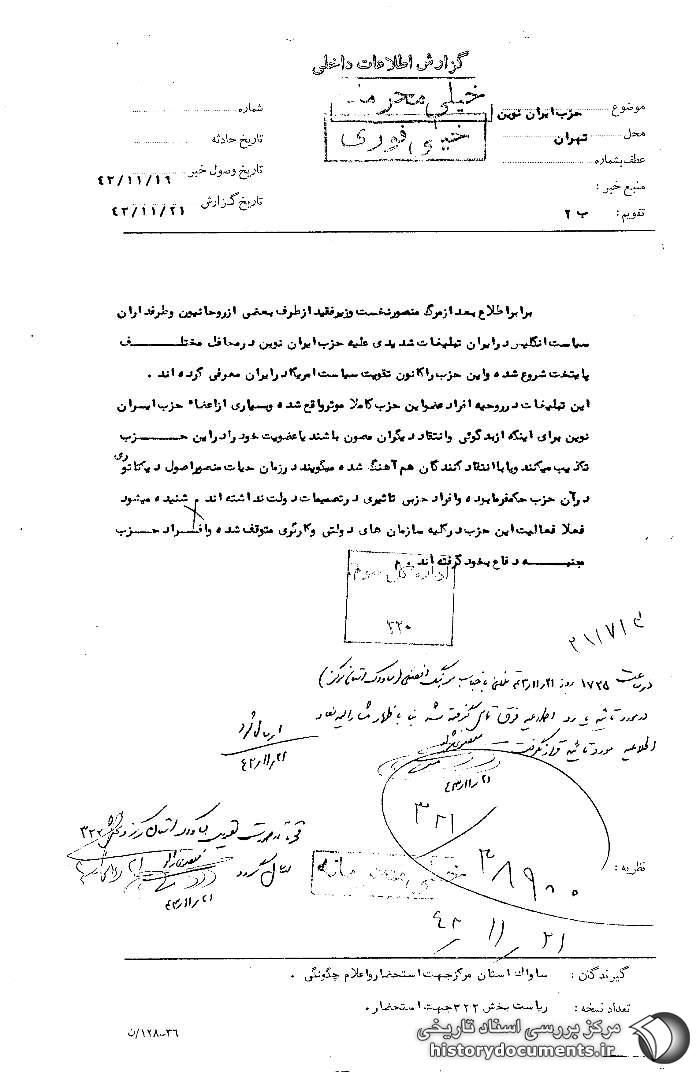 گزارش اطلاعات داخلی
خیلی محرمانه
خیلی فوری
موضوع حزب ایران نوین
محل تهران
عطف بشماره
منبع خبر :
تقویم : ب ۲
شماره
تاریخ حادثه
تاریخ وصول خبر ۴۳/۱۱/۱۶
تاریخ گزارش ۴۳/۱۱/۲۱
برابر اطلاع بعد از مرگ منصور نخست وزیر فقید از طرف بعضی از روحانیون و طرفداران
سیاست انگلیس در ایران تبلیغات شدیدی علیه حزب ایران نوین در محافل مختلف
پایتخت شروع شده و این حزب را کانون تقویت سیاست امریکا در ایران معرفی کرده اند .
این تبلیغات در روحیه افراد عضو این حزب کاملا موثر واقع شده و بسیاری از اعضاء حزب ایران
نوین برای اینکه از بدگوئی و انتقاد دیگران مصون باشند یا عضویت خود را در این حزب
تکذیب میکنند و یا با انتقاد کنندگان هم آهنگ شده میگویند در زمان حیات منصور اصول دیکتاتوری
در آن حزب حکمفرما بوده و افراد حزبی تاثیری در تصمیمات دولت نداشته اند . شنیده میشود
فعلا فعالیت این حزب در کلیه سازمان های دولتی و کارگری متوقف شده و افراد حزب
جنبه دفاع بخود گرفته اند . م
اداره کل سوم
۳۲۰
در ساعت ۱۷۲۵ روز ۴۳/۱۱/۲۱ تلفنی با جناب سرهنگ (ساواک استان مرکز)
در مورد تائید یا رد اطلاعیه فوق تماس گرفته شد بنا باظهار مشارالیه مفاد
اطلاعیه مورد تائید قرار گرفت
۴۳/۱۱/۲۱
ارسال گردد
۴۳/۱۱/۲۱
۳۲۱
۳۸۹۰۰
۴۳/۱۱/۲۱
ارسال گردد
۴۳/۱۱/۲۱
خیلی محرمانه
نظریه :
گیرندگان : ساواک استان مرکز جهت استحضار و اعلام چگونگی .
تعداد نسخه : ریاست بخش ۳۲۲ جهت استحضار .
۳۶-۱۲۸/ن
مرکز بررسی اسناد تاریخی
historydocuments.ir